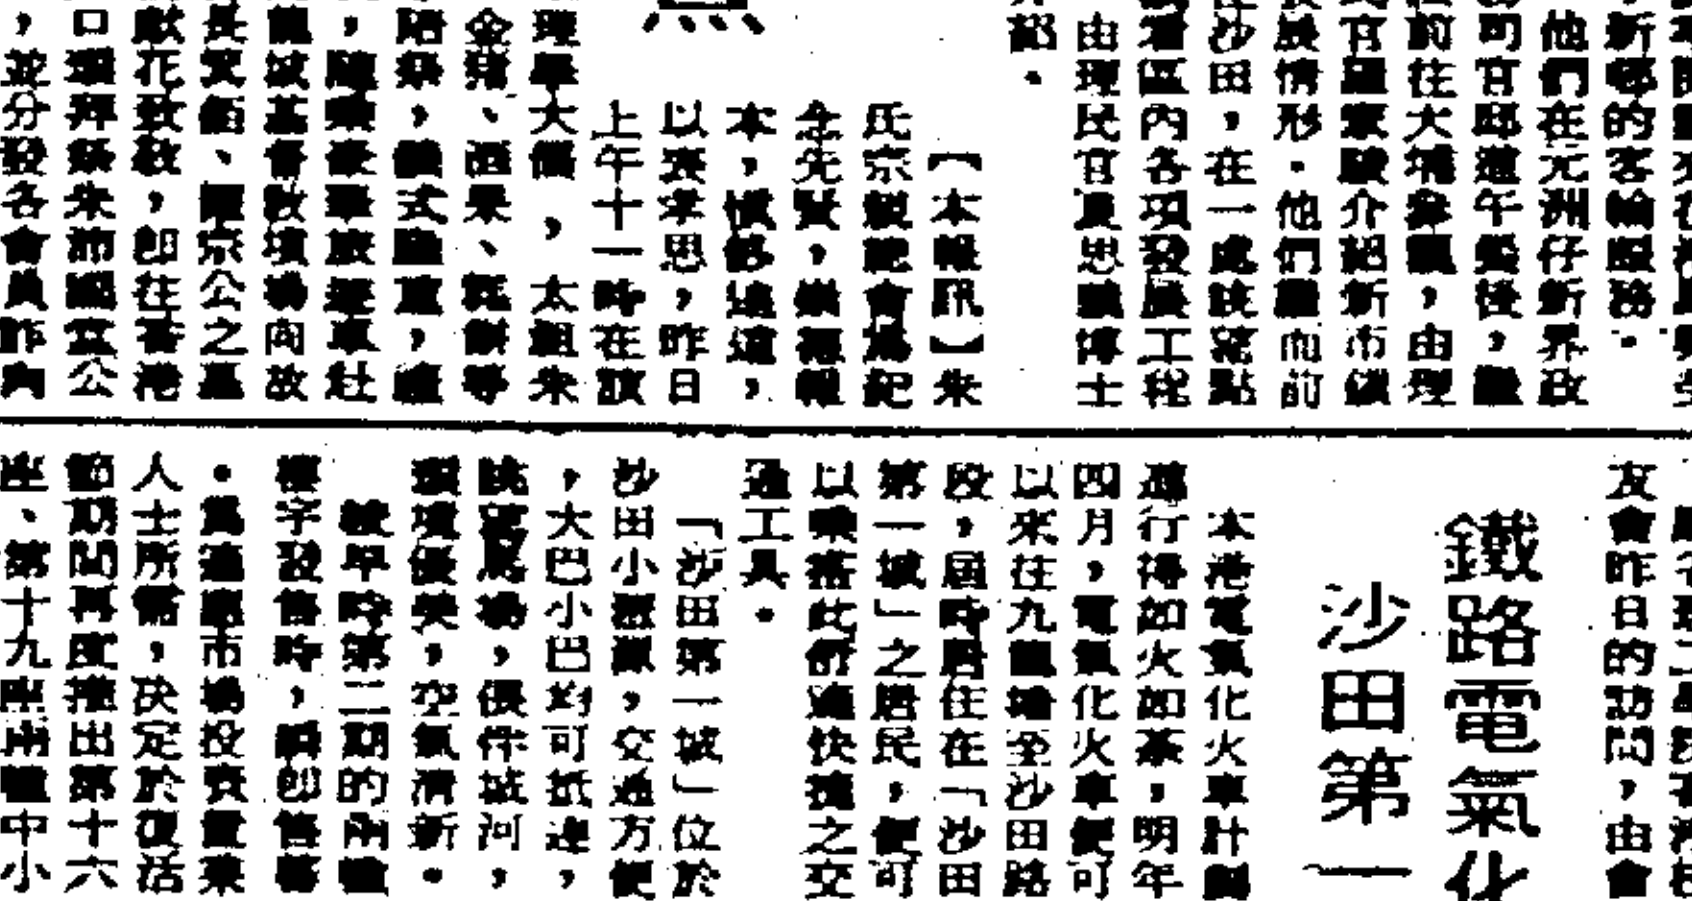 新的客輪服務。
他們在元洲仔新界政
司官邸進午餐後，繼
前往大埔參觀，由理
官羅家駿介紹新市鎮
展情形。他們繼而前
沙田，在一處眺望點
看區內各項發展工程
由理民官夏思義博士
紹。
【本報訊】朱
氏宗親總會為紀
念先賢，崇德報
本，慎終追遠，
以表孝思，昨日
上午十一時在該
大儒，太祖朱
金豬、酒果、糕餅等
路祭，儀式隆重，禮
，隨乘豪華旅遊車赴
龍城基督教墳場向故
長、羅京公之墓
獻花致敬，即往香港
口環拜祭朱沛國堂公
，並分發各會員胙肉
友會昨日的訪問，由會
鐵路電氣化
沙田第一
本港電氣化火車計劃
進行得如火如荼，明年
四月，電氣化火車便可
以來往九龍塘至沙田路
段，屆時居住在「沙田
第一城」之居民，便可
以乘搭此舒適快捷之交
通工具。
「沙田第一城」位於
沙田小瀝源，交通方便
，大巴小巴均可抵達，
眺望馬場，俱伴城河，
環境優美，空氣清新。
較早時第二期的兩幢
樓宇發售時，瞬即售罄
。為適應市場投資置業
人士所需，決定於復活
節期間再度推出第十六
座、第十九座兩幢中小